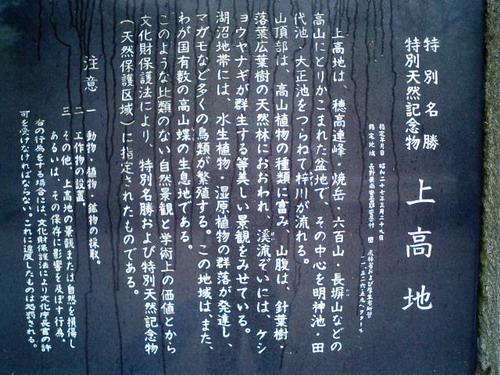 特別名勝
特別天然記念物
上高地
上高地は、穂高連峰・焼岳・六百山・長塀山などの
高山にとりかこまれた盆地で、その中心を明神池・田
代池・大正池をつらねて梓川が流れる。
山頂部は、高山植物の種類に富み、山腹は、針葉樹・
落葉広葉樹の天然林におおわれ、渓流ぞいには、ケシ
ョウヤナギが群生する等美しい景観をみせている。
湖沼地帯には、水生植物・湿原植物の群落が発達し、
マガモなど多くの鳥類が繁殖する。この地域は、また、
わが国有数の高山蝶の生息地である。
このような比類のない自然景観と学術上の価値とから
文化財保護法により、特別名勝および特別天然記念物
(天然保護区域)に指定されたものである。
注意
一 動物・植物・鉱物の採取。
二 工作物の設置。
三 その他、上高地の景観または自然を損傷し
あるいは、その保存に影響を及ぼす行為。
右の行為をする場合には、文化財保護法により文化庁長官の許
可を受けなければならない。これに違反したものは処罰される。